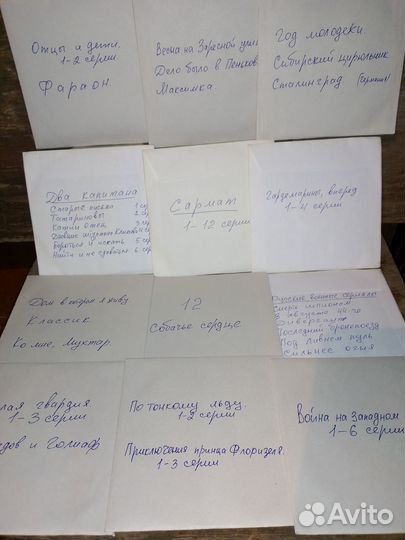 Отцы и дети.
1-2 серии
Фараон.
Весна на Заречной ули
Дело было в Пеньков
Максимка.
Год молодски.
Сибирский цирюльник
Сталинград
Два капитана
Старые письма 1 се
Татариновы 2 се
Катин отец 3
4
Бороться и искать 5 се
Найти и не сдаваться 6 с
Сармат
1-12 серии
Гардемарины, вперед
1-4 серии
Дом в котором я живу
Классик
Ко мне, Мухтар.
12
Собачье сердце
Русские военные сериалы
Смерть шпионам
В августе 44-го
Диверсант
Последний бронепоезд
Под ливнем пуль
Сильнее огня
лая гвардия.
1-3 серии
идов и Голиаф
По тонкому льду.
1-2 серии
Приключения принца Флоризеля.
1-3 серии
Война на Западном
1-6 серии
Avito